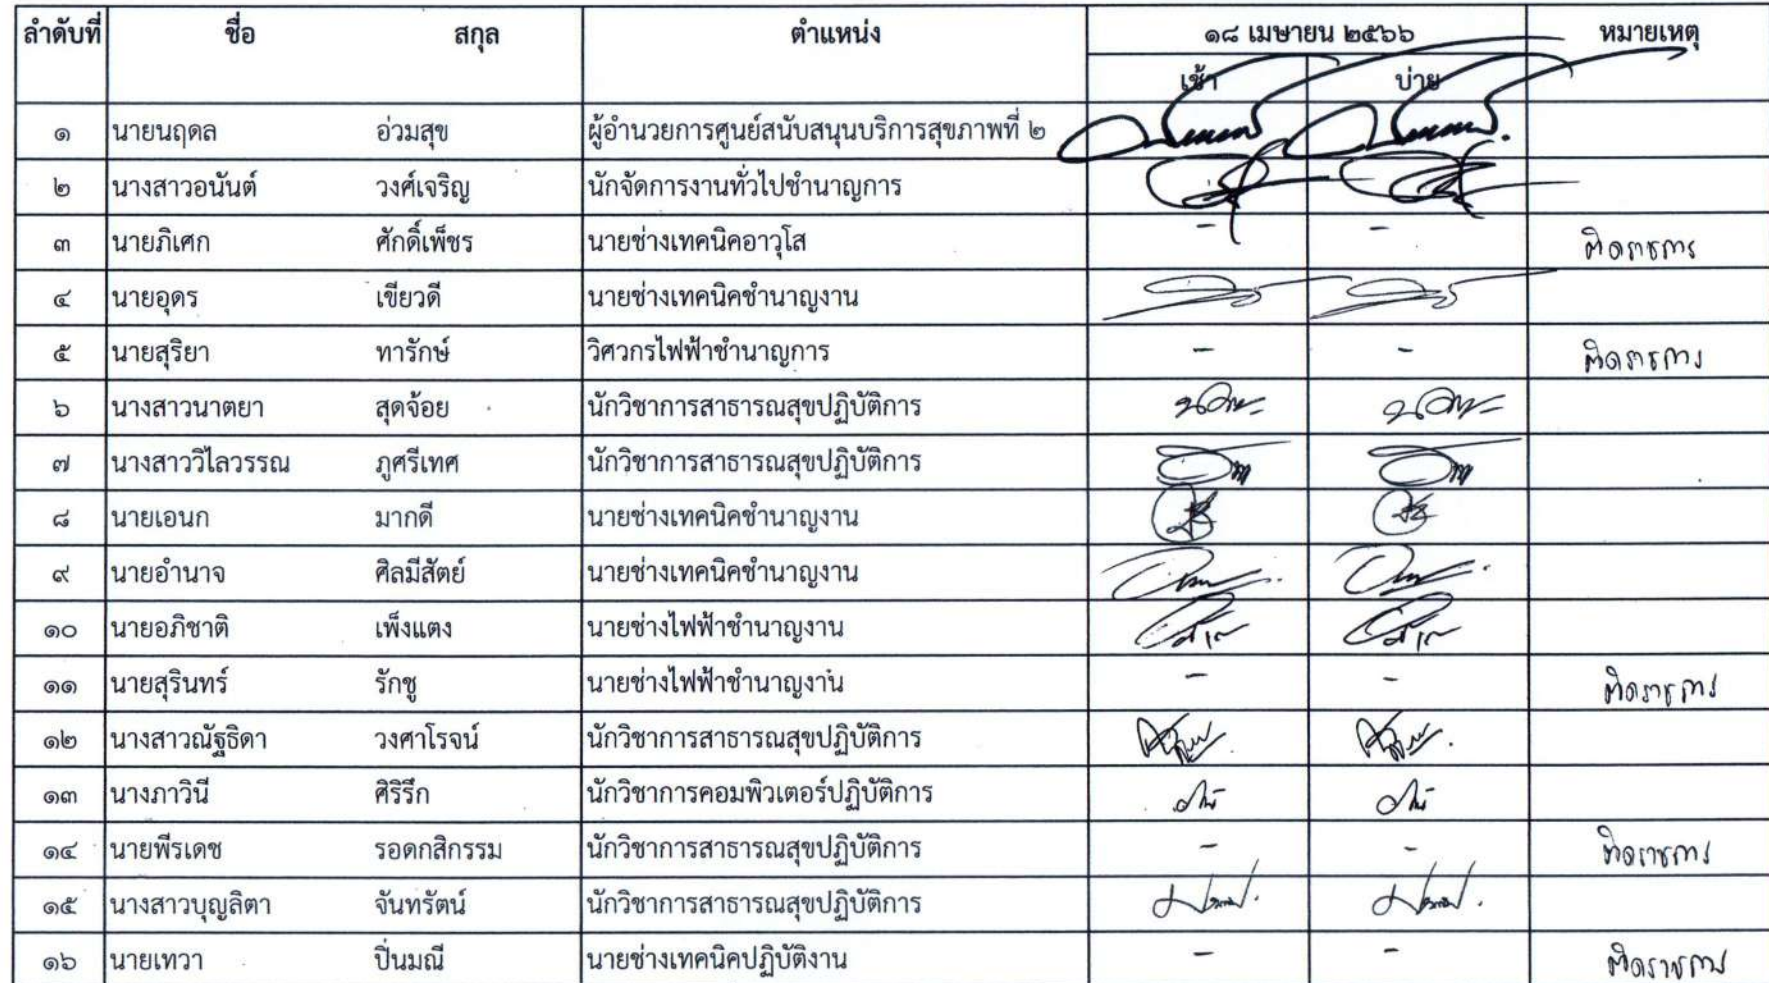 ลำดับที่ ชื่อ สกุล ตำแหน่ง ๑๘ เมษายน ๒๕๖๖ หมายเหตุ
เช้า บ่าย
๑ นายนฤดล อ่วมสุข ผู้อำนวยการศูนย์สนับสนุนบริการสุขภาพที่ ๒
๒ นางสาวอนันต์ วงศ์เจริญ นักจัดการงานทั่วไปชำนาญการ
๓ นายภิเศก ศักดิ์เพ็ชร นายช่างเทคนิคอาวุโส - - ติดราชการ
๔ นายอุดร เขียวดี นายช่างเทคนิคชำนาญงาน
๕ นายสุริยา ทารักษ์ วิศวกรไฟฟ้าชำนาญการ - - ติดราชการ
๖ นางสาวนาตยา สุดจ้อย นักวิชาการสาธารณสุขปฏิบัติการ
๗ นางสาววิไลวรรณ ภูศรีเทศ นักวิชาการสาธารณสุขปฏิบัติการ
๘ นายเอนก มากดี นายช่างเทคนิคชำนาญงาน
๙ นายอำนาจ ศิลมีสัตย์ นายช่างเทคนิคชำนาญงาน
๑๐ นายอภิชาติ เพ็งแตง นายช่างไฟฟ้าชำนาญงาน
๑๑ นายสุรินทร์ รักชู นายช่างไฟฟ้าชำนาญงาน - - ติดราชการ
๑๒ นางสาวณัฐธิดา วงศาโรจน์ นักวิชาการสาธารณสุขปฏิบัติการ
๑๓ นางภาวินี ศิริรึก นักวิชาการคอมพิวเตอร์ปฏิบัติการ
๑๔ นายพีรเดช รอดกสิกรรม นักวิชาการสาธารณสุขปฏิบัติการ - - ติดราชการ
๑๕ นางสาวบุญลิตา จันทรัตน์ นักวิชาการสาธารณสุขปฏิบัติการ
๑๖ นายเทวา ปิ่นมณี นายช่างเทคนิคปฏิบัติงาน - - ติดราชการ